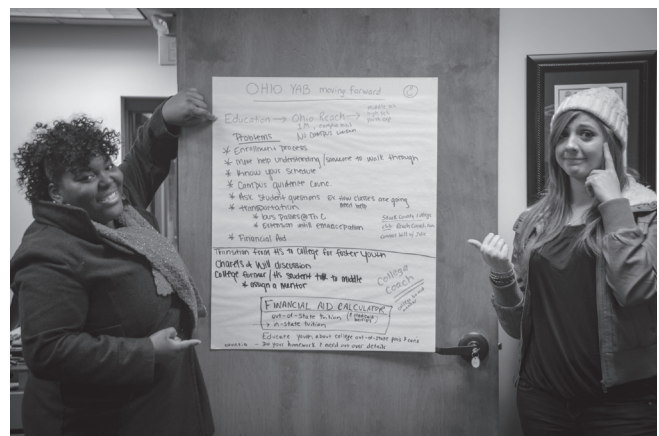 OHIO YAB moving forward
Education → Ohio Reach →
middle sch
high sch
Problems
No campus liaison
* Enrollment process
* More help understanding / someone to work through
* Know your schedule
* Campus guidance Counc.
* Ask student questions ex how classes are going
need help
* transportation
* bus passes
* extension until emancipation
* Financial Aid
Stark County college
Transition from HS to College for foster youth
Charels & Will discussion
College former / HS student talk to middle
* assign a mentor
College
Coach
FINANCIAL AID CALCULATOR
out-of-state tuition
in-state tuition
Educate youth about college out-of-state pros & cons
- Do your homework & need out over details